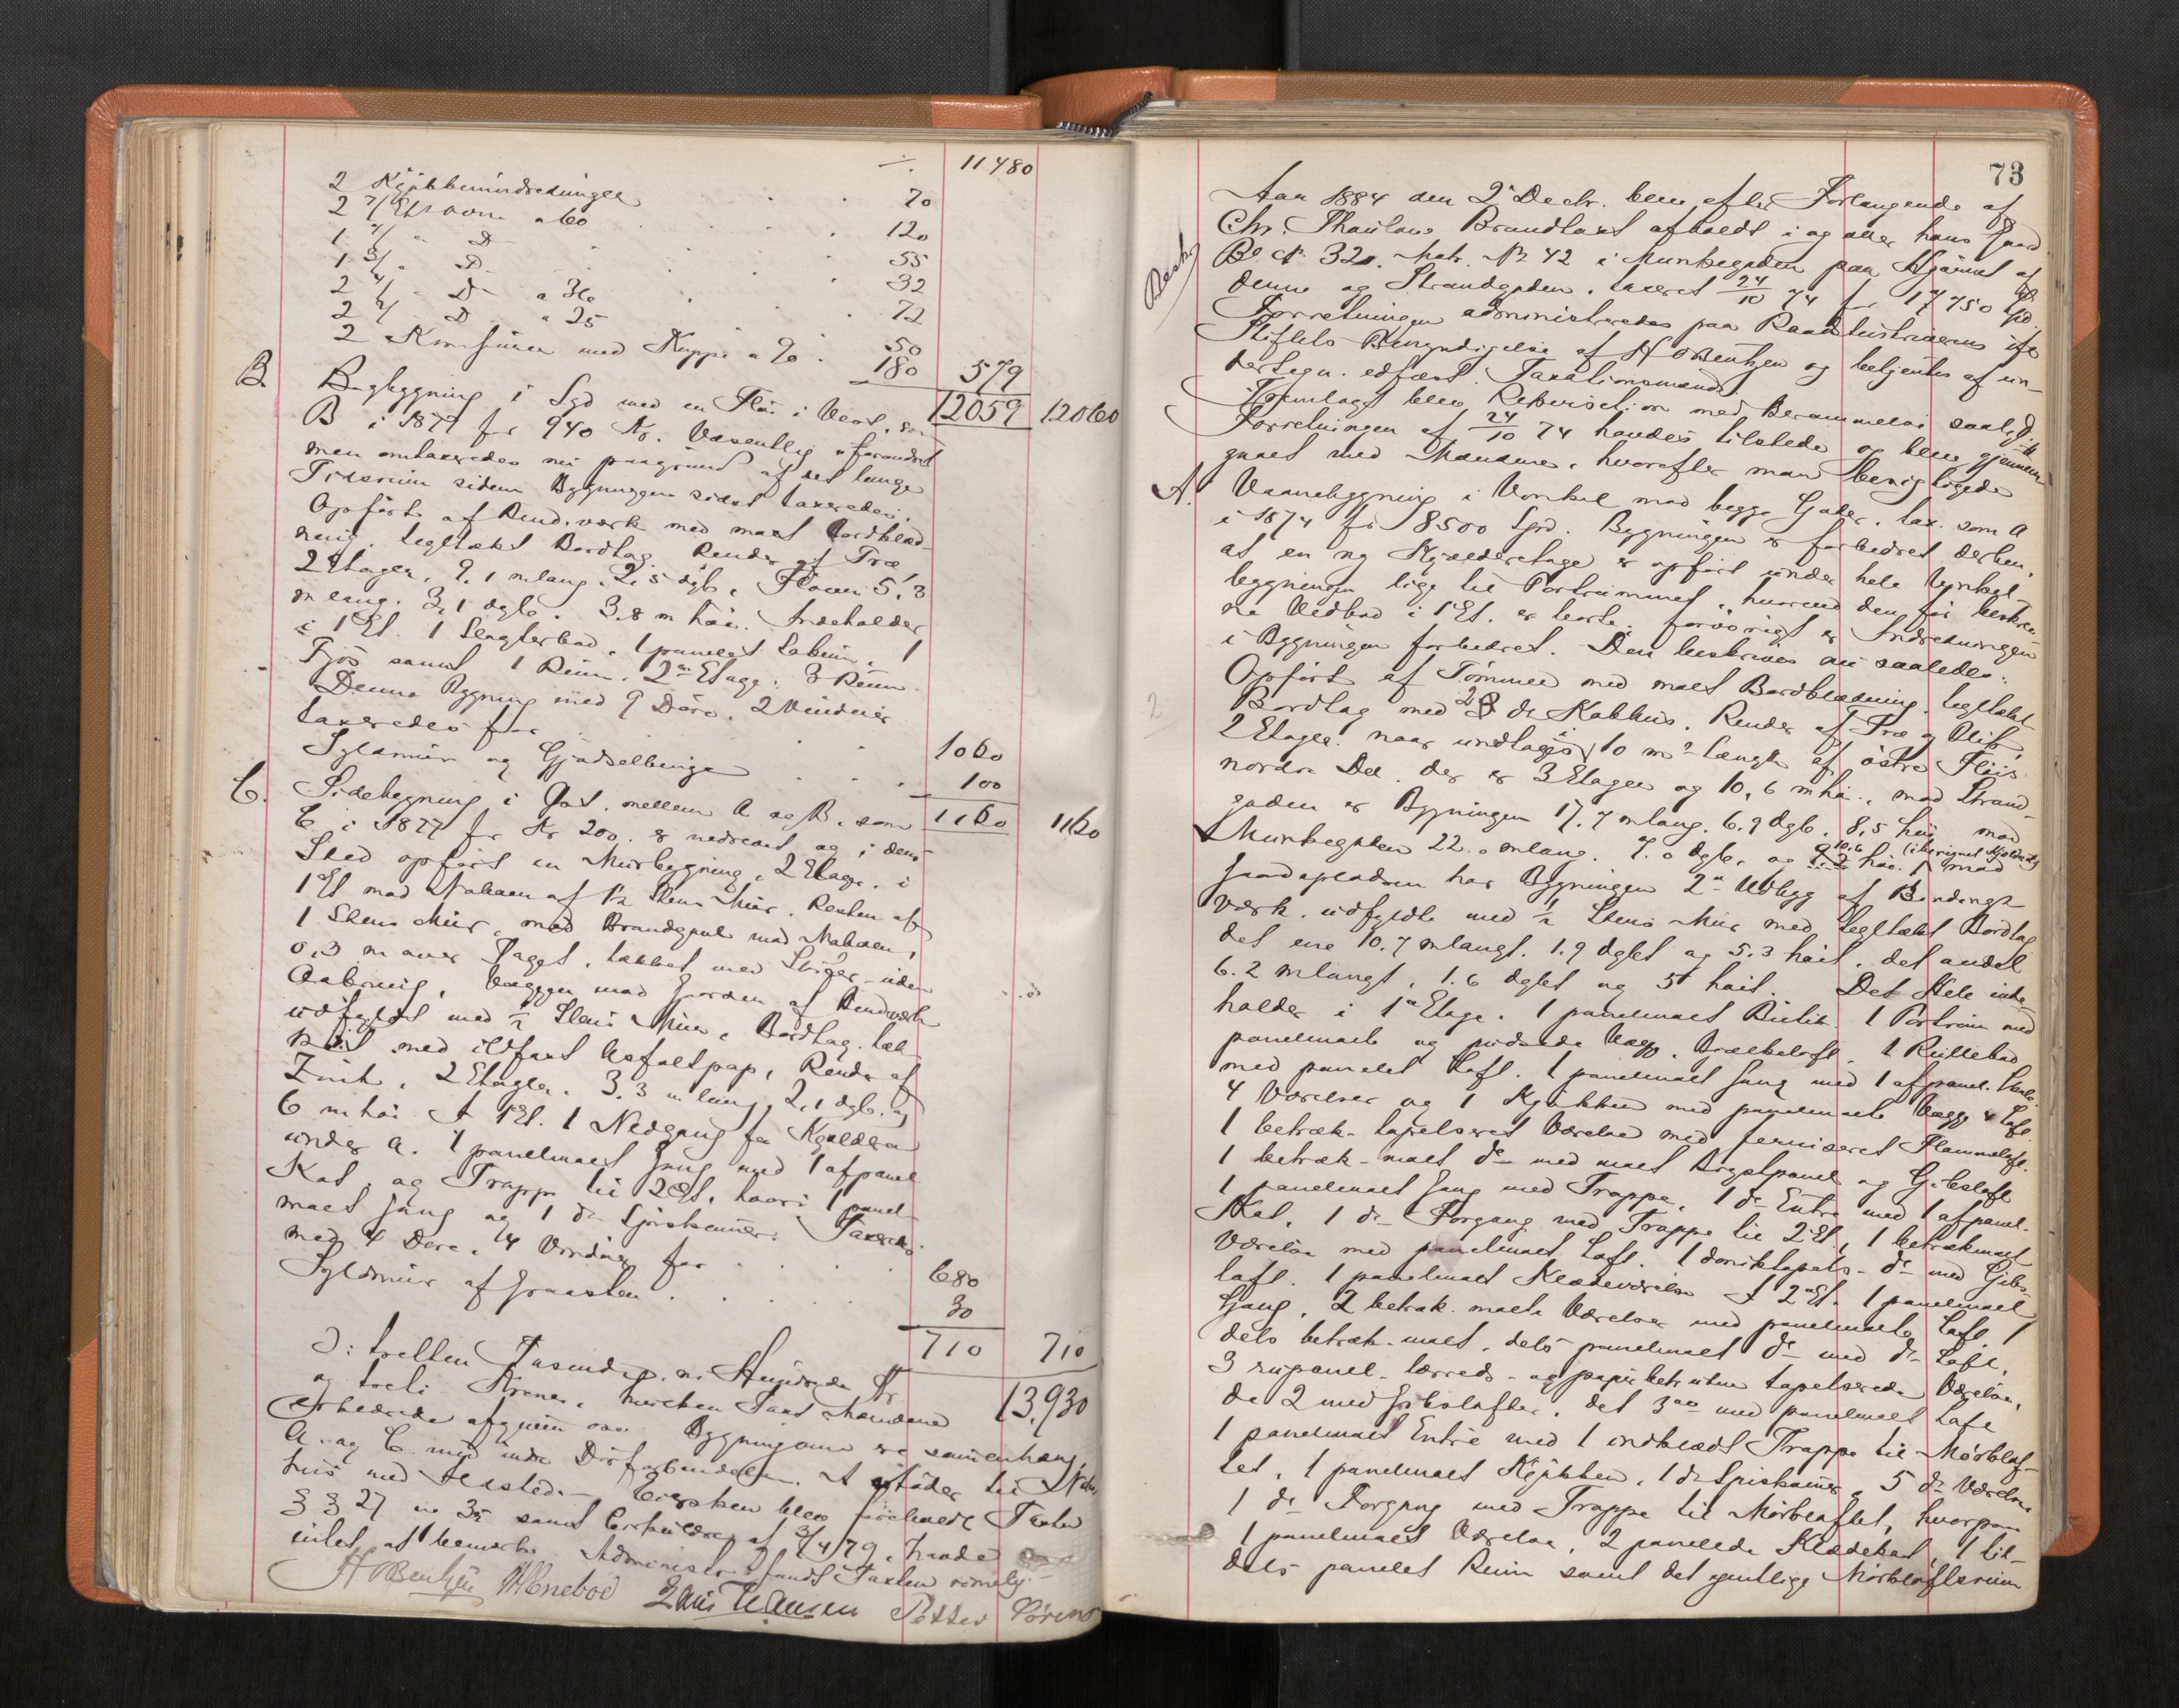 ÷ 11480
2 Kjøkkenindredninger . . 70
2 2/ Et. ovne a 60 . . . 120
1 2/ " D . . . 55
1 3/ " D . . . 32
2 4/ " D a 36 . . . 72
2 2/ D " 25 . . 50
2 Komfurer med Kappe a 90 . 180 579
12059 12060
B Bagbygning i Syd med en Fløi i Vest, som
B i 1877 for 940 Kr. Væsentlig uforandret
men omtaxeredes nu paagrund af det lange
Tidsrum siden Bygningen sidst taxeredes.
Opført af Bind.værk med malt Bordklæd-
ning, tegltækt Bordtag. Render af Træ,
2 Etager, 9,1 m lang, 2,5 dyb, Fløien 5,3
m lang, 3,1 dyb. 3,8 m høi. Indeholder
i 1 Et. 1 Slagterbod, 1 panelet Lokum, 1
Fjøs samt 1 Rum. 2den Etage: 3 Rum.
Denne Bygning med 9 Døre, 2 Vinduer
taxeredes for . . . 1060
Syldmur og Gjødselbinge . . . 100
1160 1160
C. Sidebygning i Øst, mellem A og B, som
C i 1877 for Kr 200, er nedrevet og i dens
Sted opført en Murbygning, 2 Etager, i
1 Et mod Naboen af 1½ Stens Mur, Resten af
1 Stens Mur, med Brandgavl mod Naboen,
0,3 m over Taget, tækket med Skifer, uden
Aabning, Væggen mod Gaarden af Bindværk
udfyldt med ½ Stens Mur, Bordtag, tæk-
ket med ildfast Asfaltpap, Render af
Zink, 2 Etager. 3,3 m lang, 2,1 dyb. og
6 m høi. I 1 Et. 1 Nedgang fra Kjælderen
under A. 1 panelmalt Gang med 1 afpanel
Kot, og Trappe til 2 Et, hvori 1 panel-
malt Gang og 1 do Spiskamer. Taxeredes
med 4 Døre, 4 Vinduer for . . . . 680
Syldmur af Graasten . . . . 30
710 710
ɔ: tretten Tusinde, ni Hundrede Kr 13,930
og treti Kroner, hvorken Taxt Mændene
erklærede afgiven over Bygningerne ere samenhæng,
A og C med indre Dørforbindelse. A støder til Nabo
hus med Ildsted. Eiersken blev foreholdt Taxten
§ § 27 in 35 samt Cirkulære af 3/4 79, havde
intet at bemærke. Administr. fandt Taxten rimelig.
H OBentzen Hans Hansen Petter Sørens
73
Aar 1884 den 2 Decbr. blev efter Forlangende af
Chr. Thaulow Brandtaxt afholdt i og over hans Gaard
Besk.
Bl. No 320. Matr. No 42 i Munkegaden paa Hjørnet af
denne og Strandgaden, taxeret 24/10 74 for 17750 Spd.
Forretningen administreredes paa Raadstuskriverens ifø
Stiftets Bemyndigelse af H OBentzen og betjentes af un-
dertegn. edfæst. Taxationsmænd.
Fremlagt blev Rekvisition med Berammelse saalyd:
Forretningen af 24/10 74 havdes tilstede og blev gjennem-
gaaet med Mændene, hvorefter man besigtigede
A. Vaanebygning i Vinkel mod begge Gader, tax. som A
i 1874 for 8500 Spd. Bygningen er forbedret derhen,
at en ny Kjælderetage er opført under hele Vinkel-
bygningen lige til Portrummet, hvorved den før beskrev-
ne Vedbod i 1 Et. er borte, forøvrigt er Indredningen
i Bygningen forbedret. Den beskrives nu saaledes:
Opført af Tømmer med malt Bordklædning, tegltækt
2
Bordtag med 2 do Kakhus. Render af Træ og Blik,
2 Etager, naar undtages 10 m i Længde af østre Fløis
nordre Del, der er 3 Etager og 10,6 m høi, mod Strand-
gaden er Bygningen 17.7 m lang. 6.9 dyb. 8,5 høi, mod
Munkegaden 22.0 m lang. 7.0 dyb, og 10.6 høi. (iberegnet Kjelderetg) mod
Gaardspladsen har Bygningen 2de Udbygg af Bindings-
værk, udfyldt med ½ Stens Mur med tegltækt Bordtag
det ene 10.7 m langt. 1.9 dybt og 5.3 høit, det andet
6.2 m langt, 1.6 dybt og 5 høit. Det Hele inde-
holder i 1ste Etage. 1 panelmalt Butik. 1 Portrum med
panelmalt og pudsede Vægg. Brækeloft. 1 Rullebod
med panelet Loft. 1 panelmalt Gang med 1 afpanel.
4 Værelser og 1 Kjøkken med panelmalte Vægg & Loft.
1 betræk-tapetseret Værelse med ferniseret Flammeloft.
1 betræk-malt do med malt Brystpanel og Gibsloft
1 panelmalt Gang med Trappe, 1 do Entre med 1 afpanel.
Kot, 1 do Forgang med Trappe til 2 Et, 1 betrækmalt
Værelse med panelmalt Loft. 1 do med Gibs-
loft. 1 panelmalt Klædeværelse. I 2 Et. 1 panelmalt
Gang, 2 betræk. malte Værelser med panelmalte Loft, 1
dels betræk-malt, dels panelmalt do med do Loft,
3 rupanel-lærreds- og papirbetrukne tapetserede Værelser,
de 2 med Gibslofter, det 3die med panelmalt Loft
1 panelmalt Entre med 1 indklædt Trappe til Mørklof-
tet, 1 panelmalt Kjøkken, 1 do Spiskamer, 5 do Værelser
1 do Forgang med Trappe til Mørkloftet, hvorpaa
1 panelmalt Værelse, 2 panelede Klædekot, 1 til-
dels panelet Rum samt det egentlige Mørkloftsrum